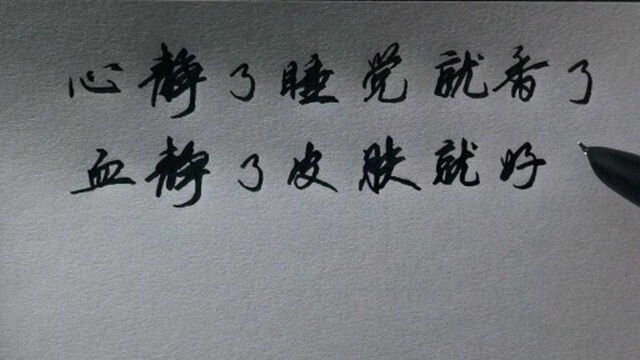 心静了睡觉就香了
血静了皮肤就好